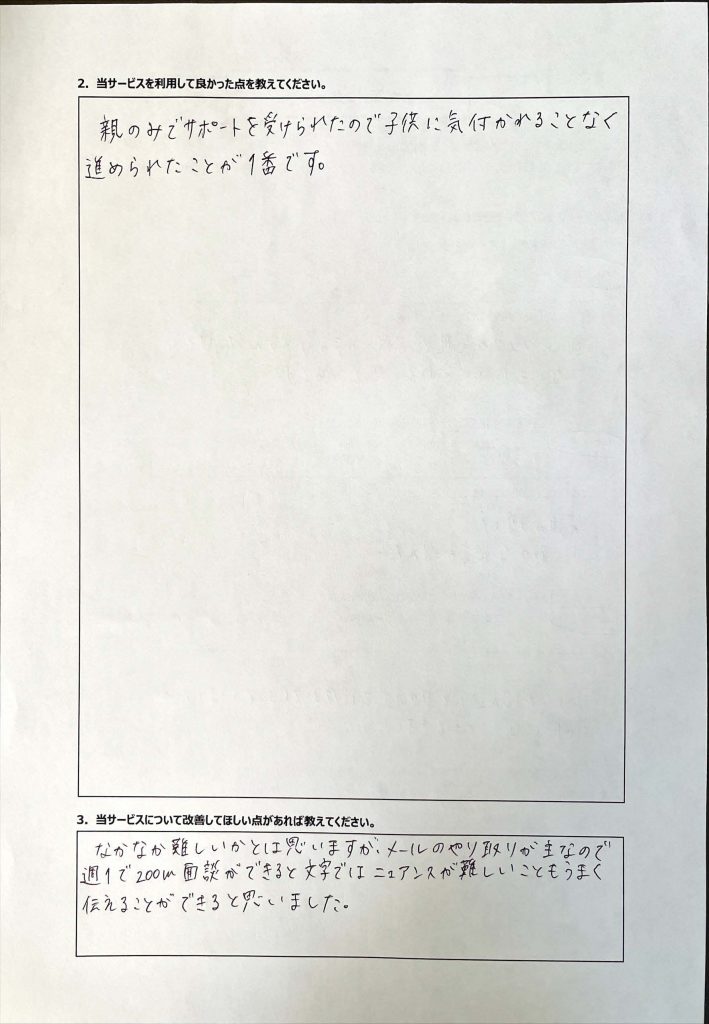 2. 当サービスを利用して良かった点を教えてください。
親のみでサポートを受けられたので子供に気付かれることなく
進められたことが1番です。
3. 当サービスについて改善してほしい点があれば教えてください。
なかなか難しいかとは思いますが、メールのやり取りが主なので
週1で200m面談ができると文字ではニュアンスが難しいこともうまく
伝えることができると思いました。